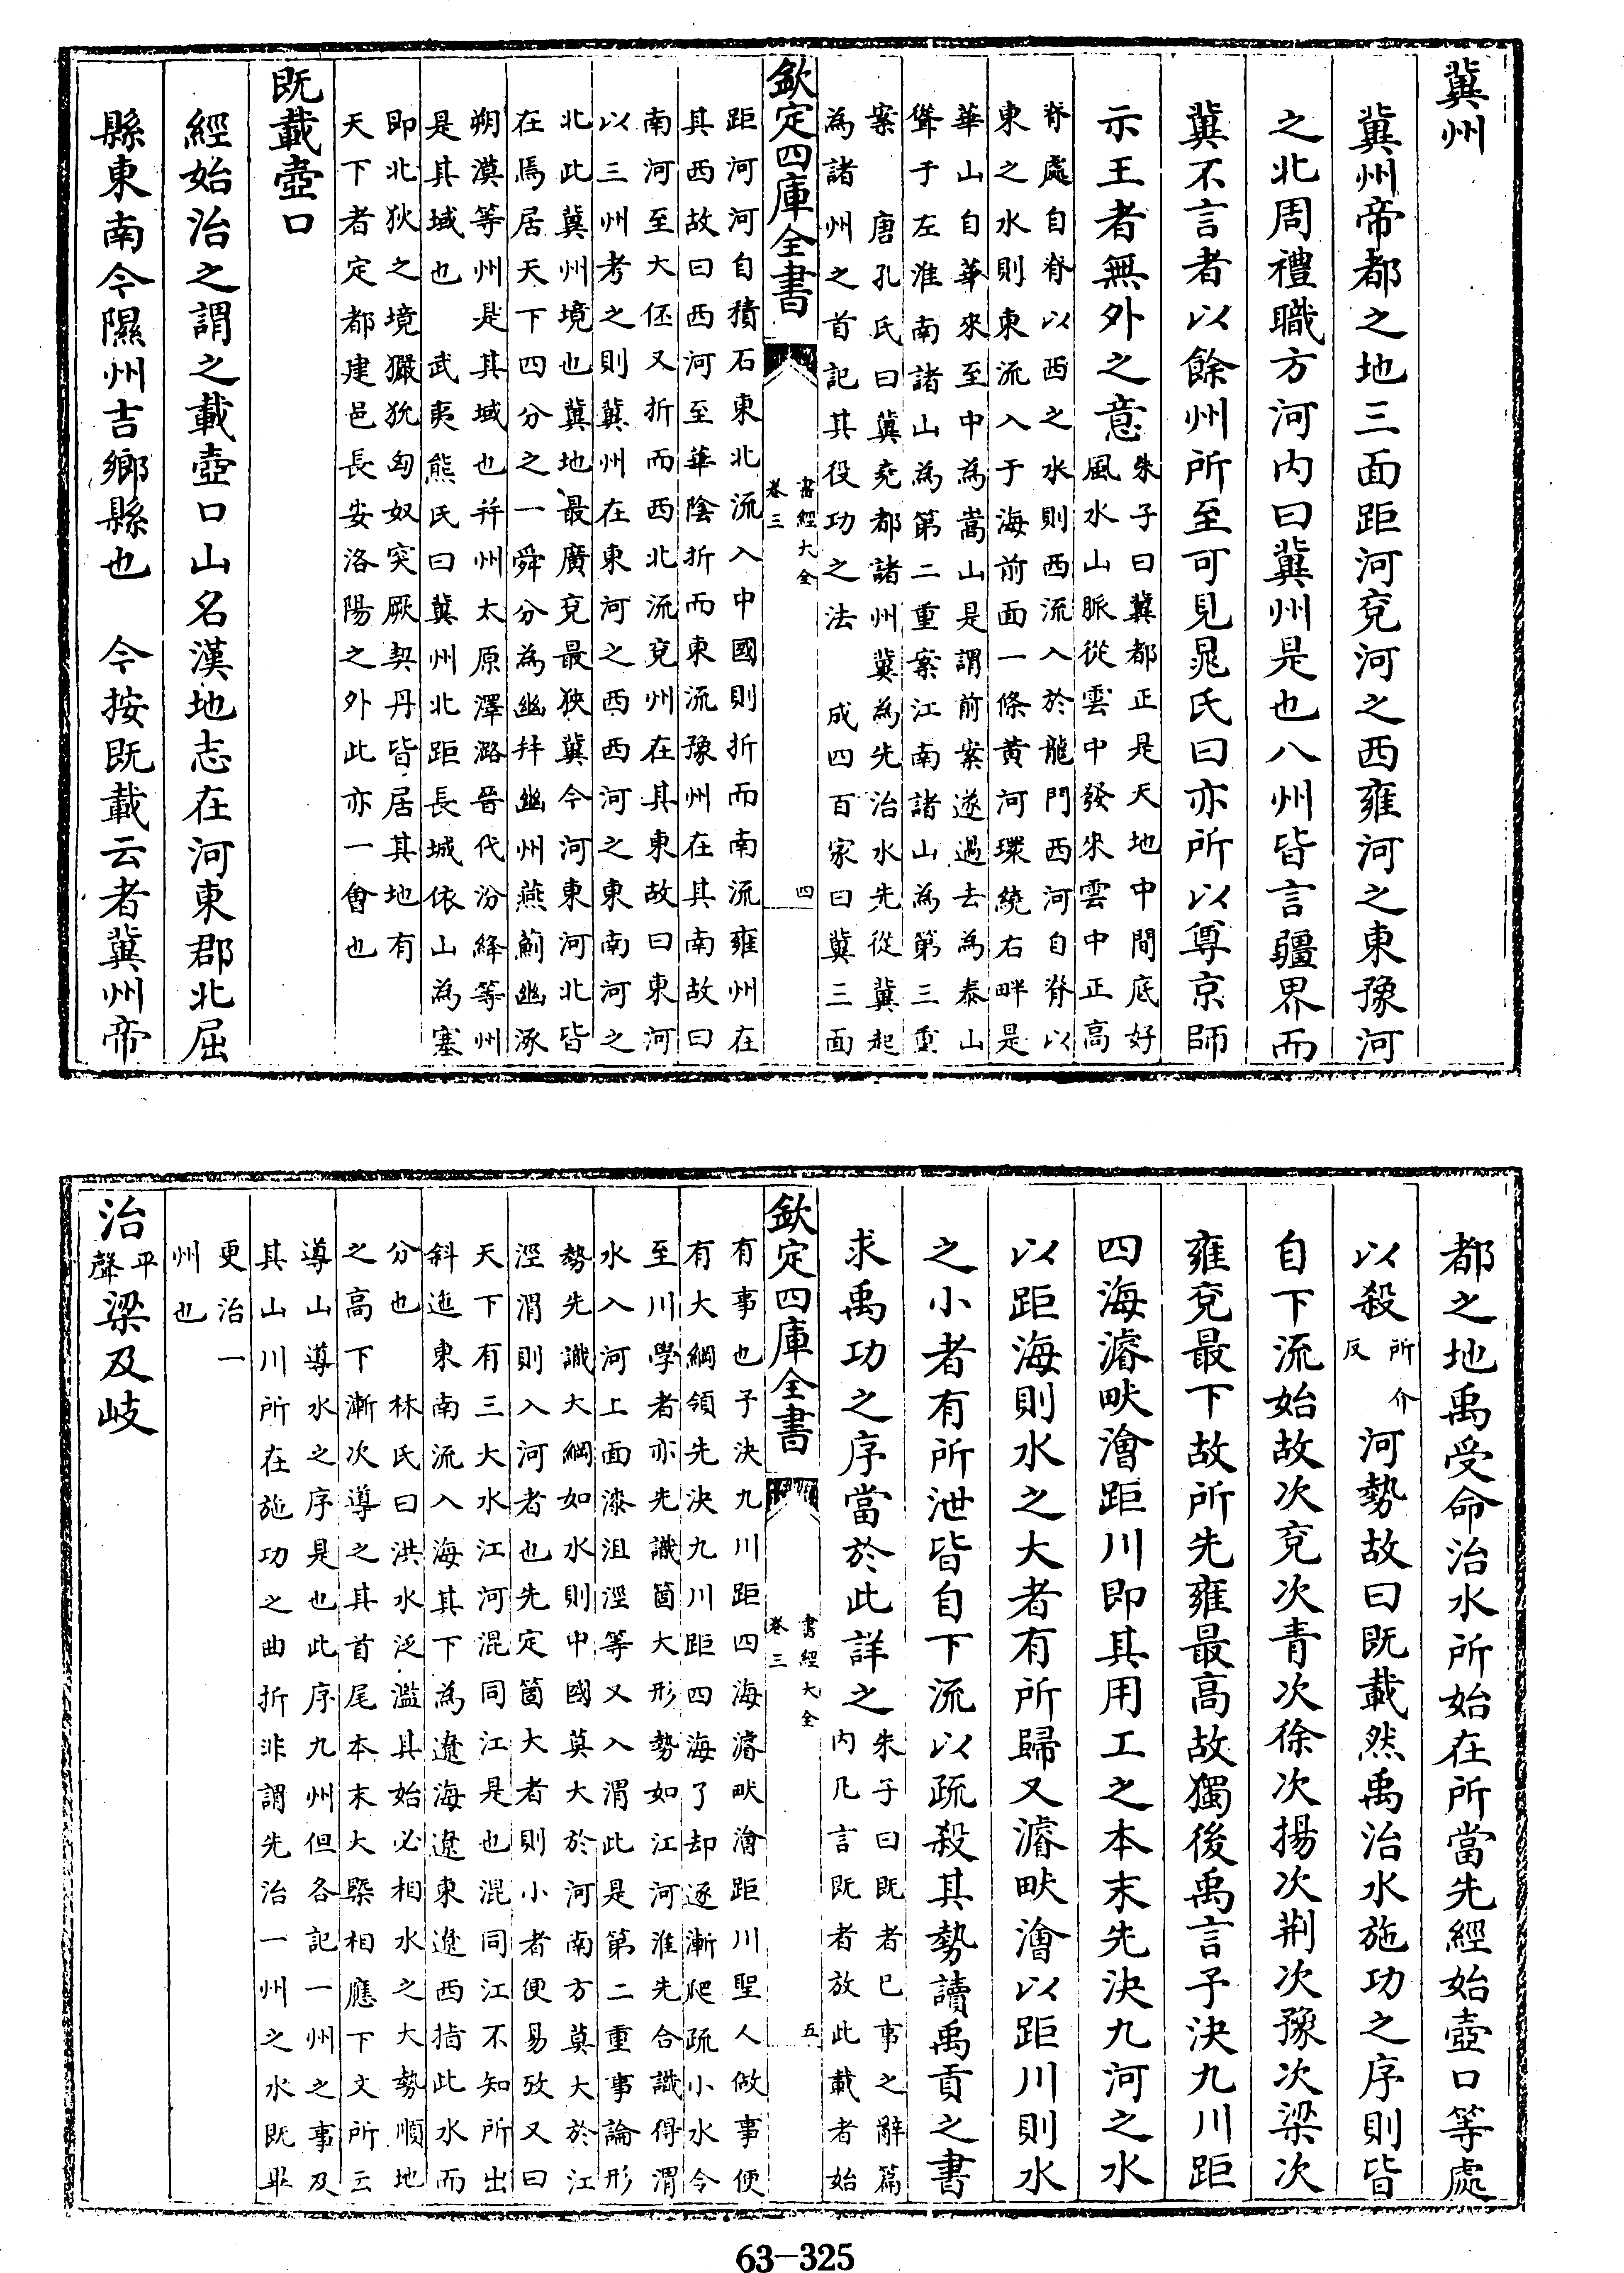 冀州
冀州帝都之地三面距河兗河之西雍河之東豫河
之北周禮職方河内曰冀州是也八州皆言疆界而
冀不言者以餘州所至可見晁氏曰亦所以尊京師
示王者無外之意朱子曰冀都正是天地中間底好
風水山脈從雲中發來雲中正高
脊處自脊以西之水則西流入於龍門西河自脊以
東之水則東流入于海前面一條黄河環繞右畔是
華山自華來至中為嵩山是謂前案遂過去為泰山
聳于左淮南諸山為第二重案江南諸山為第三重
案　唐孔氏曰冀堯都諸州冀為先治水先從冀起
為諸州之首記其役功之法　成四百家曰冀三面
欽定四庫全書　書經大全　卷三　四
距河河自積石東北流入中國則折而南流雍州在
其西故曰西河至華陰折而東流豫州在其南故曰
南河至大伾又折而西北流兗州在其東故曰東河
以三州考之則冀州在東河之西西河之東南河之
北此冀州境也冀地最廣兗最狹冀今河東河北皆
在焉居天下四分之一舜分為幽并幽州燕薊幽涿
朔漠等州是其域也并州太原澤潞晉代汾絳等州
是其域也　武夷熊氏曰冀州北距長城依山為塞
即北狄之境玁狁匈奴突厥契丹皆居其地有
天下者定都建邑長安洛陽之外此亦一會也
既載壺口
經始治之謂之載壺口山名漢地志在河東郡北屈
縣東南今隰州吉鄉縣也　今按既載云者冀州帝
都之地禹受命治水所始在所當先經始壺口等處
以殺所介反河勢故曰既載然禹治水施功之序則皆
自下流始故次兗次青次徐次揚次荆次豫次梁次
雍兗最下故所先雍最高故獨後禹言予決九川距
四海濬畎澮距川即其用工之本末先決九河之水
以距海則水之大者有所歸又濬畎澮以距川則水
之小者有所泄皆自下流以疏殺其勢讀禹貢之書
求禹功之序當於此詳之朱子曰既者已事之辭篇
内凡言既者放此載者始
欽定四庫全書　書經大全　卷三　五
有事也予決九川距四海濬畎澮距川聖人做事便
有大綱領先決九川距四海了却逐漸爬疏小水令
至川學者亦先識箇大形勢如江河淮先合識得渭
水入河上面漆沮涇等又入渭此是第二重事論形
勢先識大綱如水則中國莫大於河南方莫大於江
涇渭則入河者也先定箇大者則小者便易攷又曰
天下有三大水江河混同江是也混同江不知所出
斜迤東南流入海其下為遼海遼東遼西指此水而
分也　林氏曰洪水泛濫其始必相水之大勢順地
之高下漸次導之其首尾本末大槩相應下文所云
導山導水之序是也此序九州但各記一州之事及
其山川所在施功之曲折非謂先治一州之水既畢
更治一
州也
治平聲梁及岐
63-325